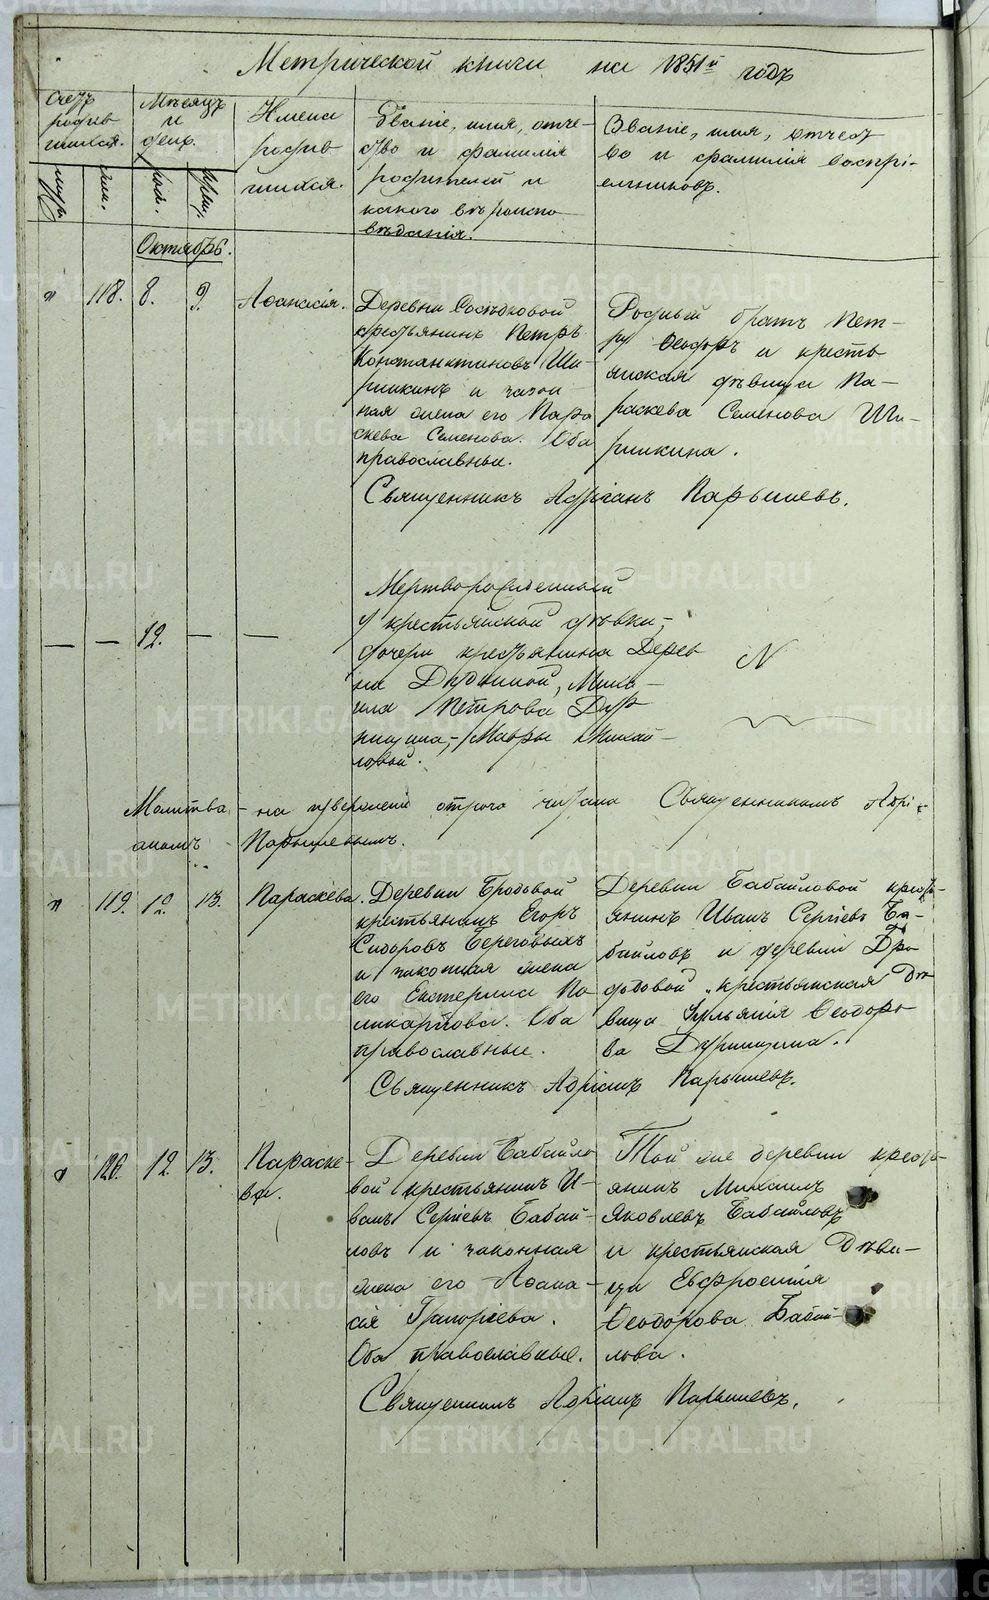 Метрической книги на 1851й годъ
Счетъ родив шихся.
Мѣсяцъ и день.
Имена родив шихся.
Званіе, имя, отче-
ство и фамилія
родителей и
какого вѣроиспо
вѣданія.
Званіе, имя, отчест
во и фамилія воспрі-
емниковъ.
муж.
жен.
рож.
крещ.
Октябрь.
118. 8. 9. Аѳанасія.
Деревни
крестьянинъ Петръ
Константиновъ Ши-
ришкинъ и закон
ная жена его Пара
скева Семенова. Оба
православные.
Родный братъ Пет-
ру Ѳеодоръ и кресть
янская дѣвица Па-
раскева Семенова Ши-
ришкина.
Священникъ Адріанъ Парышевъ.
— — 12. — —
Мертворожденный
у крестьянской дѣвки,-
дочери крестьянина Дерев
ни Михаи-
ла Петрова
Мавры Михай-
ловой.
N
Молитва - на отроча читана Священникомъ Адрі-
аномъ Парышевымъ.
119. 12. 13. Параскева.
Деревни Бродовой
крестьянинъ Егоръ
Сидоровъ Береговыхъ
и законная жена
его Екатерина По
ликарпова. Оба
православные.
Деревни Бабайловой кресть-
янинъ Иванъ Сергіевъ Ба-
байловъ и деревни Бро
довой крестьянская Дѣ
вица Ульянія Ѳеодоро
ва
Священникъ Адріанъ Парышевъ.
120. 12. 13. Параске-
ва.
Деревни Бабайло
вой крестьянинъ И-
ванъ Сергіевъ Бабай-
ловъ и законная
жена его Аѳана-
сія Григоріева.
Оба православные.
Той же деревни кресть-
янинъ Михаилъ
Яковлевъ Бабайловъ
и крестьянская Дѣви-
ца Евфросинія
Ѳеодорова Бабай-
лова.
Священникъ Адріанъ Парышевъ.
METRIKI.GASO-URAL.RU